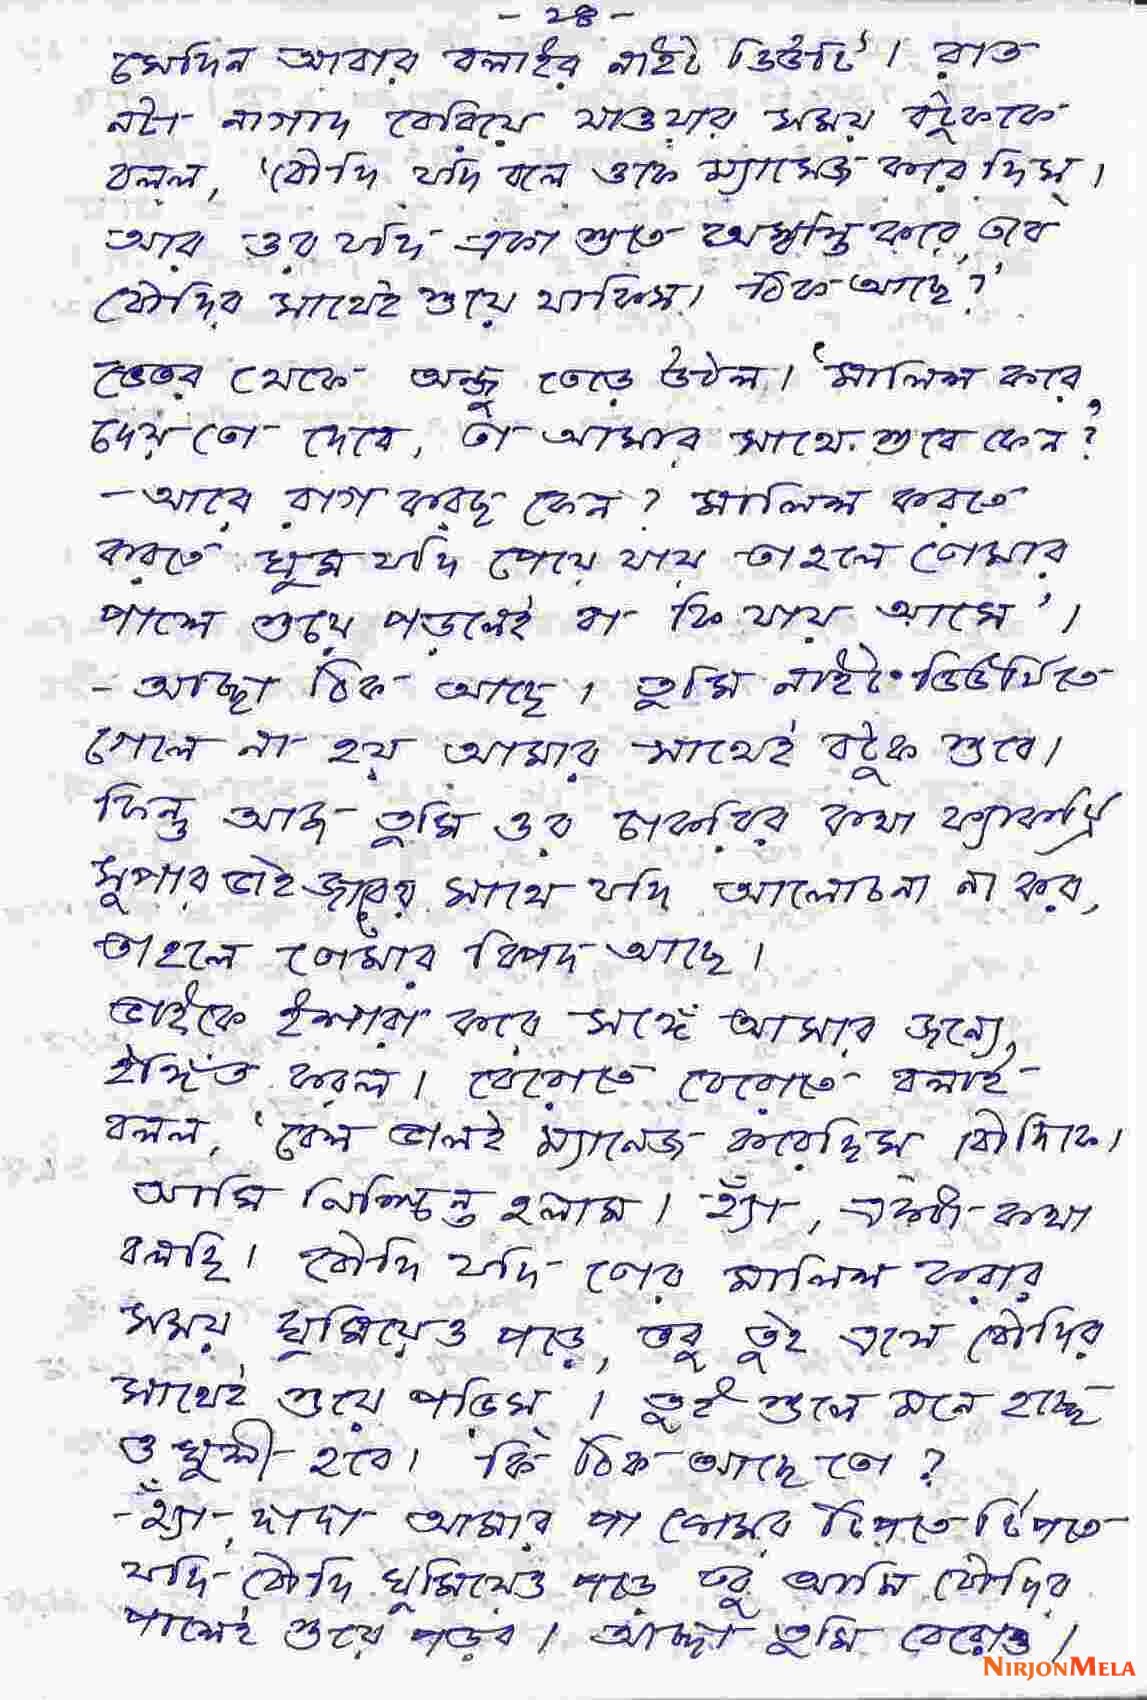 - ২৪ -
সেদিন আবার বলাইর নাইট ডিউটি। রাত
নটা নাগাদ বেরিয়ে যাওয়ার সময় বটুককে
বলল, 'বৌদি যদি বলে ওকে ম্যাসেজ করে দিস।
আর ওর যদি একা শুতে অস্বস্তি করে, তবে
বৌদির সাথেই শুয়ে থাকিস। ঠিক আছে?'
ভেতর থেকে অন্জু তেড়ে উঠল। 'মালিশ করে
দেয় তো দেবে, তা আমার সাথে শুবে কেন?'
- আরে রাগ করছ কেন? মালিশ করতে
করতে ঘুম যদি পেয়ে যায় তাহলে তোমার
পাশে শুয়ে পড়লেই বা কি যায় আসে'।
- আচ্ছা ঠিক আছে। তুমি নাইট ডিউটিতে
গেলে না হয় আমার সাথেই বটুক শুবে।
কিন্তু আজ তুমি ওর চাকরির কথা ফ্যাকট্রি
সুপারভাইজারের সাথে যদি আলোচনা না কর,
তাহলে তোমার বিপদ আছে।
ভাইকে ইশারা করে সঙ্গে আসার জন্যে,
ইঙ্গিত করল। বেরোতে বেরোতে বলাই
বলল, 'বেশ ভালই ম্যানেজ করেছিস বৌদিকে।
আমি নিশ্চিন্ত হলাম। হ্যাঁ, একটা কথা
বলছি। বৌদি যদি তোর মালিশ করার
সময় ঘুমিয়েও পড়ে, তবু তুই এসে বৌদির
সাথেই শুয়ে পড়িস। তুই শুলে মনে হচ্ছে
ও খুশী হবে। কি ঠিক আছে তো?
- হ্যাঁ, দাদা আমার পা কোমর টিপতে টিপতে
যদি বৌদি ঘুমিয়েও পড়ে তবু আমি বৌদির
পাশেই শুয়ে পড়ব। আচ্ছা তুমি বেরোও।
NIRJONMELA